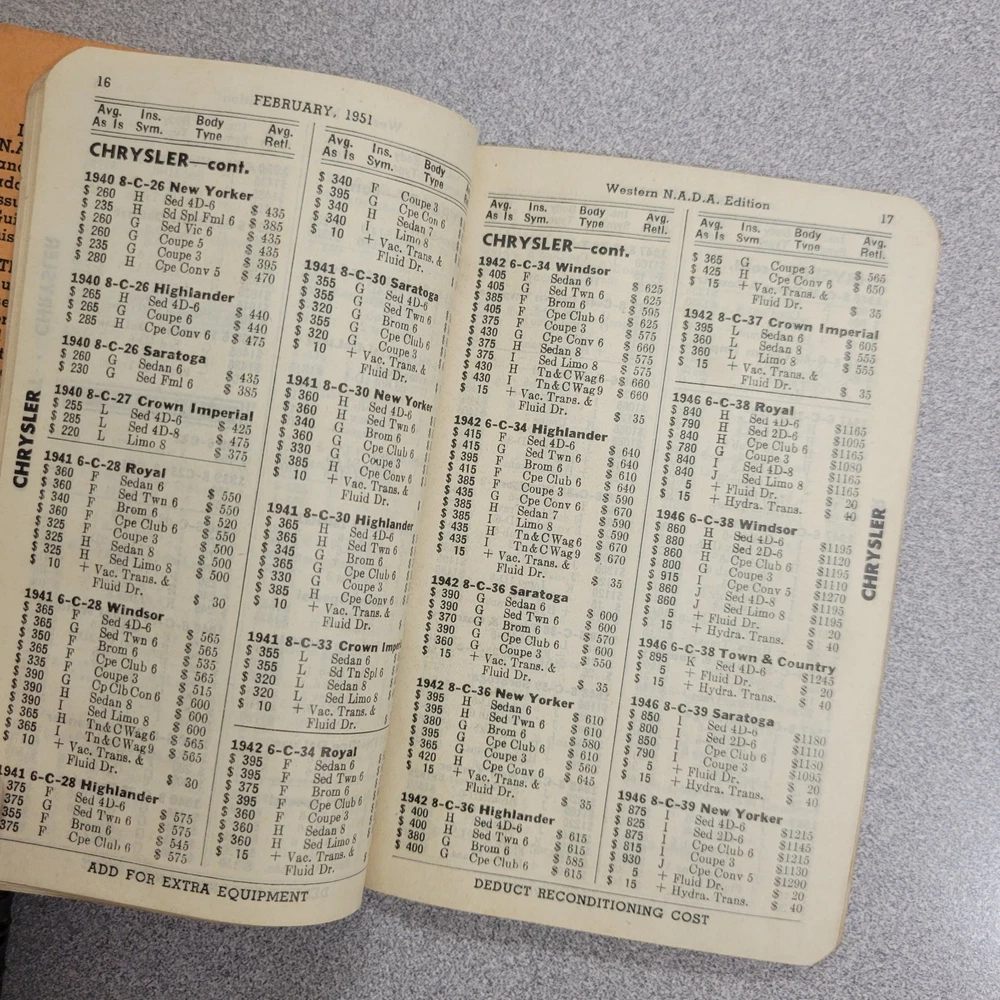 16
FEBRUARY, 1951
Avg. Ins. Body Avg.
As Is Sym. Type Retl.
CHRYSLER—cont.
1940 8-C-26 New Yorker
$ 260 H Sed 4D-6 $ 435
$ 235 H Sd Spl Fml 6 $ 385
$ 260 G Sed Vic 6 $ 435
$ 260 G Coupe 5 $ 435
$ 235 G Coupe 3 $ 395
$ 280 H Cpe Conv 5 $ 470
1940 8-C-26 Highlander
$ 265 H Sed 4D-6 $ 440
$ 265 G Coupe 6 $ 440
$ 285 H Cpe Conv 6 $ 475
1940 8-C-26 Saratoga
$ 260 G Sedan 6 $ 435
$ 230 G Sed Fml 6 $ 385
1940 8-C-27 Crown Imperial
$ 255 L Sed 4D-6 $ 425
$ 285 L Sed 4D-8 $ 475
$ 220 L Limo 8 $ 375
1941 6-C-28 Royal
$ 360 F Sedan 6 $ 550
$ 360 F Sed Twn 6 $ 550
$ 340 F Brom 6 $ 520
$ 360 F Cpe Club 6 $ 550
$ 325 F Coupe 3 $ 500
$ 325 H Sedan 8 $ 500
$ 325 H Sed Limo 8 $ 500
$ 10 + Vac. Trans. &
Fluid Dr. $ 30
1941 6-C-28 Windsor
$ 365 F Sed 4D-6 $ 565
$ 365 G Sed Twn 6 $ 565
$ 350 F Brom 6 $ 535
$ 365 F Cpe Club 6 $ 565
$ 335 F Coupe 3 $ 515
$ 390 G CpClbCon6 $ 600
$ 390 H Sedan 8 $ 600
$ 390 I Sed Limo 8
$ 365 H Tn&CWag6 $ 565
$ 365 I Tn&CWag9 $ 565
$ 10 + Vac. Trans. &
Fluid Dr. $ 30
1941 6-C-28 Highlander
375 F Sed 4D-6 $ 575
375 G Sed Twn 6 $ 575
355 F Brom 6 $ 545
375 F Cpe Club 6 $ 575
Avg. Ins. Body
As Is Sym. Type
$ 340 F Coupe 3
$ 395 G Cpe Con 6
$ 340 H Sedan 7
$ 340 I Limo 8
$ 10 + Vac. Trans. &
Fluid Dr.
1941 8-C-30 Saratoga
$ 355 G Sed 4D-6
$ 355 G Sed Twn 6
$ 320 G Brom 6
$ 355 G Cpe Club 6
$ 320 G Coupe 3
$ 10 + Vac. Trans. &
Fluid Dr.
1941 8-C-30 New Yorker
$ 360 H Sed 4D-6
$ 360 H Sed Twn 6
$ 340 G Brom 6
$ 360 G Cpe Club 6
$ 330 G Coupe 3
$ 385 H Cpe Conv 6
$ 10 + Vac. Trans. &
Fluid Dr.
1941 8-C-30 Highlander
$ 365 H Sed 4D-6
$ 365 H Sed Twn 6
$ 345 G Brom 6
$ 365 G Cpe Club 6
$ 330 G Coupe 3
$ 385 H Cpe Conv 6
$ 10 + Vac. Trans. &
Fluid Dr.
1941 8-C-33 Crown Impe
$ 355 L Sedan 6
$ 355 L Sd Tn Spl 6
$ 320 L Sedan 8
$ 320 L Sed Limo 8
$ 10 + Vac. Trans. &
Fluid Dr.
1942 6-C-34 Royal
$ 395 F Sedan 6
$ 395 F Sed Twn 6
$ 375 F Brom 6
$ 395 F Cpe Club 6
$ 360 F Coupe 3
$ 360 H Sedan 8
$ 360 H Sed Limo 8
$ 15 + Vac. Trans. &
Fluid Dr.
CHRYSLER
ADD FOR EXTRA EQUIPMENT
Western N.A.D.A. Edition
17
Avg. Ins. Body Avg.
As Is Sym. Type Retl.
CHRYSLER—cont.
1942 6-C-34 Windsor
$ 405 F Sedan 6 $ 625
$ 405 G Sed Twn 6 $ 625
$ 385 F Brom 6 $ 595
$ 405 F Cpe Club 6 $ 625
$ 375 F Coupe 3 $ 575
$ 430 G Cpe Conv 6 $ 660
$ 375 H Sedan 8 $ 575
$ 375 I Sed Limo 8 $ 575
$ 430 H Tn&CWag6 $ 660
$ 430 I Tn&CWag9 $ 660
$ 15 + Vac. Trans. &
Fluid Dr. $ 35
1942 6-C-34 Highlander
$ 415 F Sed 4D-6 $ 640
$ 415 G Sed Twn 6 $ 640
$ 395 F Brom 6 $ 610
$ 415 F Cpe Club 6 $ 640
$ 385 F Coupe 3 $ 590
$ 435 G Cpe Conv 6 $ 670
$ 385 H Sedan 7 $ 590
$ 385 I Limo 8 $ 590
$ 435 H Tn&CWag6 $ 670
$ 435 I Tn&CWag9 $ 670
$ 15 + Vac. Trans. &
Fluid Dr. $ 35
1942 8-C-36 Saratoga
$ 390 G Sedan 6 $ 600
$ 390 G Sed Twn 6 $ 600
$ 370 G Brom 6 $ 570
$ 390 G Cpe Club 6 $ 600
$ 360 G Coupe 3 $ 550
$ 15 + Vac. Trans. &
Fluid Dr. $ 35
1942 8-C-36 New Yorker
$ 395 H Sedan 6 $ 610
$ 395 H Sed Twn 6 $ 610
$ 380 G Brom 6 $ 580
$ 395 G Cpe Club 6 $ 610
$ 365 G Coupe 3 $ 560
$ 420 H Cpe Conv 6 $ 645
$ 15 + Vac. Trans. &
Fluid Dr. $ 35
1942 8-C-36 Highlander
$ 400 H Sed 4D-6 $ 615
$ 400 H Sed Twn 6 $ 615
$ 380 G Brom 6 $ 585
$ 400 G Cpe Club 6 $ 615
Avg. Ins. Body Avg.
As Is Sym. Type Retl.
$ 365 G Coupe 3 $ 565
$ 425 H Cpe Conv 6 $ 650
$ 15 + Vac. Trans. &
Fluid Dr. $ 35
1942 8-C-37 Crown Imperial
$ 395 L Sedan 6 $ 605
$ 360 L Sedan 8 $ 555
$ 360 L Limo 8 $ 555
$ 15 + Vac. Trans. &
Fluid Dr. $ 35
1946 6-C-38 Royal
$ 840 H Sed 4D-6 $1165
$ 790 H Sed 2D-6 $1095
$ 840 H Cpe Club 6 $1165
$ 780 G Coupe 3 $1080
$ 840 I Sed 4D-8 $1165
$ 840 J Sed Limo 8 $1165
$ 5 + Fluid Dr. $ 20
$ 15 + Hydra. Trans. $ 40
1946 6-C-38 Windsor
$ 860 H Sed 4D-6 $1195
$ 880 H Sed 2D-6 $1120
$ 860 H Cpe Club 6 $1195
$ 800 G Coupe 3 $1110
$ 915 I Cpe Conv 5 $1270
$ 860 J Sed 4D-8 $1195
$ 860 J Sed Limo 8 $1195
$ 5 + Fluid Dr. $ 20
$ 15 + Hydra. Trans. $ 40
1946 6-C-38 Town & Country
$ 895 K Sed 4D-6 $1245
$ 5 + Fluid Dr. $ 20
$ 15 + Hydra. Trans. $ 40
1946 8-C-39 Saratoga
$ 850 I Sed 4D-6 $1180
$ 800 I Sed 2D-6 $1110
$ 850 I Cpe Club 6 $1180
$ 790 I Coupe 3 $1095
$ 5 + Fluid Dr. $ 20
$ 15 + Hydra. Trans. $ 40
1946 8-C-39 New Yorker
$ 875 I Sed 4D-6 $1215
$ 825 I Sed 2D-6 $1145
$ 875 I Cpe Club 6 $1215
$ 815 I Coupe 3 $1130
$ 930 J Cpe Conv 5 $1290
$ 5 + Fluid Dr. $ 20
$ 15 + Hydra. Trans. $ 40
CHRYSLER
DEDUCT RECONDITIONING COST